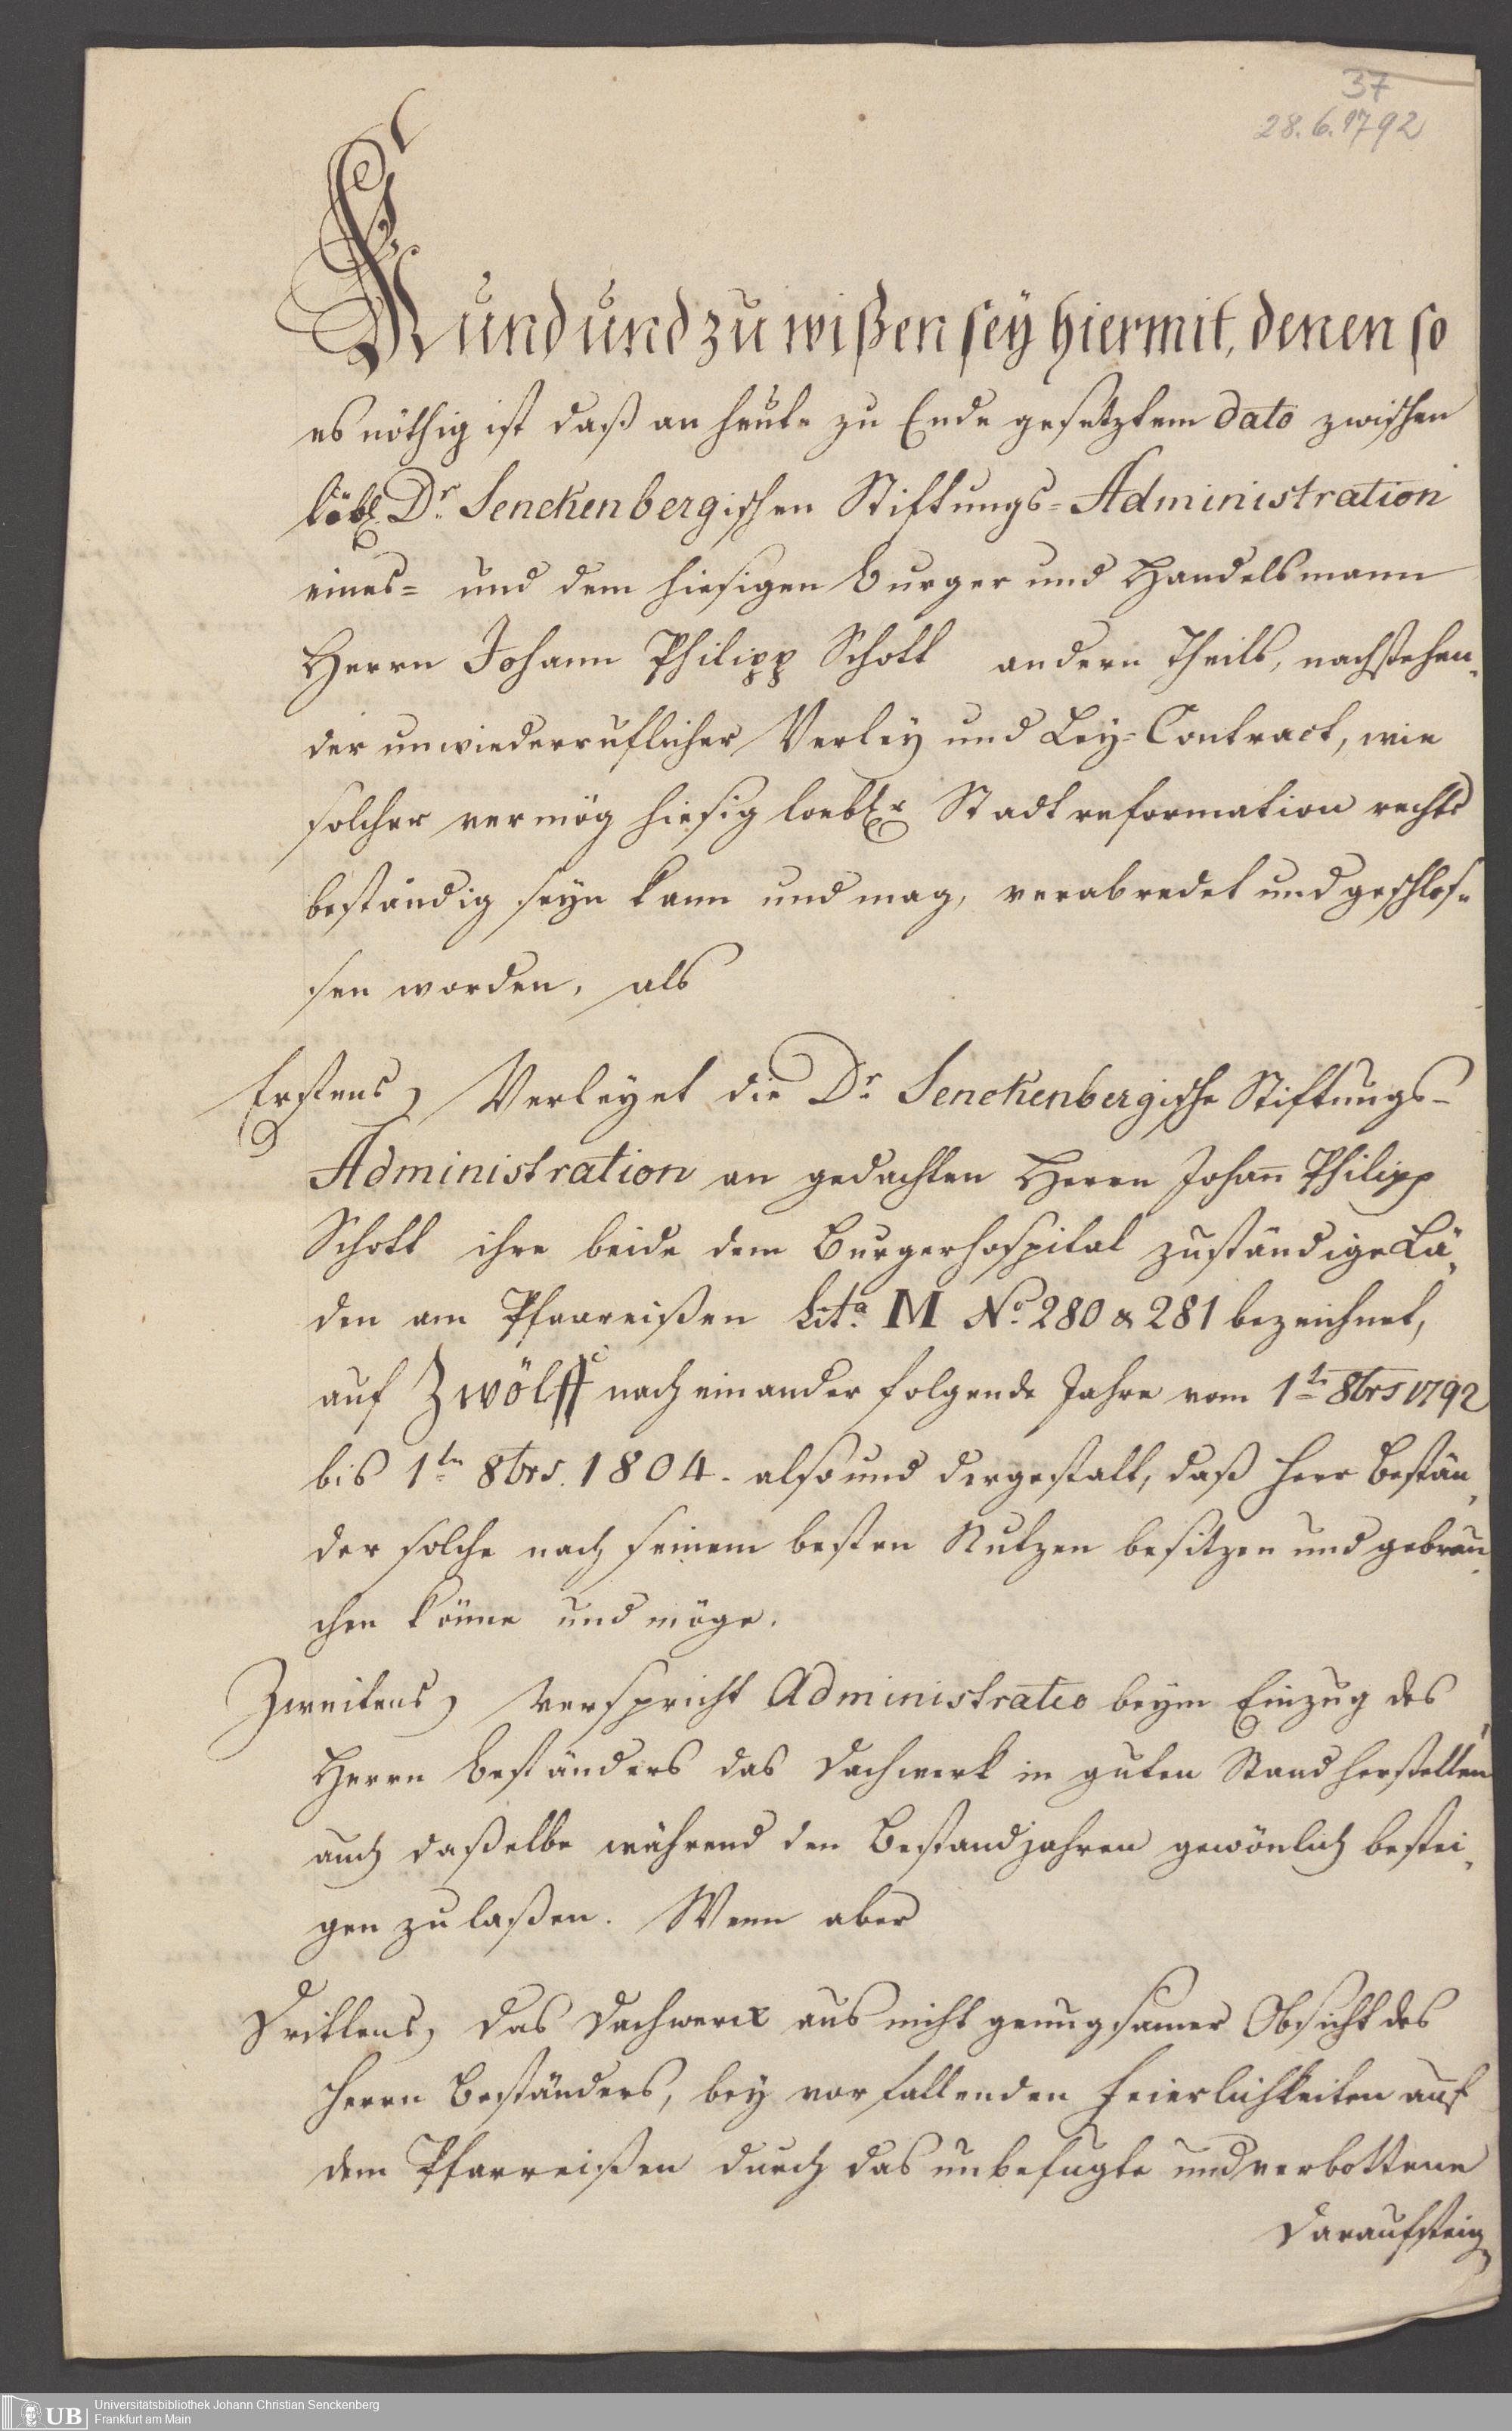 37
28.6.1792
Kund und zu wißen sey hiermit, denen so
es nöthig ist daß an heute zu Ende gesetztem dato zwischen
löbl. Dr. Senckenbergischen Stiftungs-Administration
eines= und dem hiesigen Burger und Handelsmann
Herrn Johann Philipp Schott andern Theils, nachstehen-
der unwiederruflicher Verley und Ley-Contract, wie
solcher vermög hiesig loebl.r Stadtreformation rechts
beständig seyn kann und mag, verabredet und geschlos-
sen worden, als
Erstens, Verleyet die Dr. Senckenbergische Stiftungs-
Administration an gedachten Herrn Johan̄ Philipp
Schott ihre beide dem Burgerhospital zuständige Lä-
den am Pfaareißen Lit.a M No. 280 & 281 bezeichnet,
auf Zwölff nach einander folgende Jahre vom 1ten 8brs 1792
bis 1ten 8brs. 1804. also und dergestalt, daß Herr Bestän-
der solche nach seinem besten Nutzen besitzen und gebrau-
chen könne und möge.
Zweitens, verspricht Administratio beym Einzug des
Herrn Beständers das Dachwerk in guten Stand herstellen
auch daßelbe während den Bestandjahren gewönlich bestei-
gen zu laßen. Wenn aber
Drittens, das Dachwerck aus nicht genugsamer Obsicht des
Herrn Beständers, bey vorfallenden Feierlichkeiten auf
dem Pfarreißen durch das unbefugte und verbottene
Daraufsteig
UB
Universitätsbibliothek Johann Christian Senckenberg
Frankfurt am Main